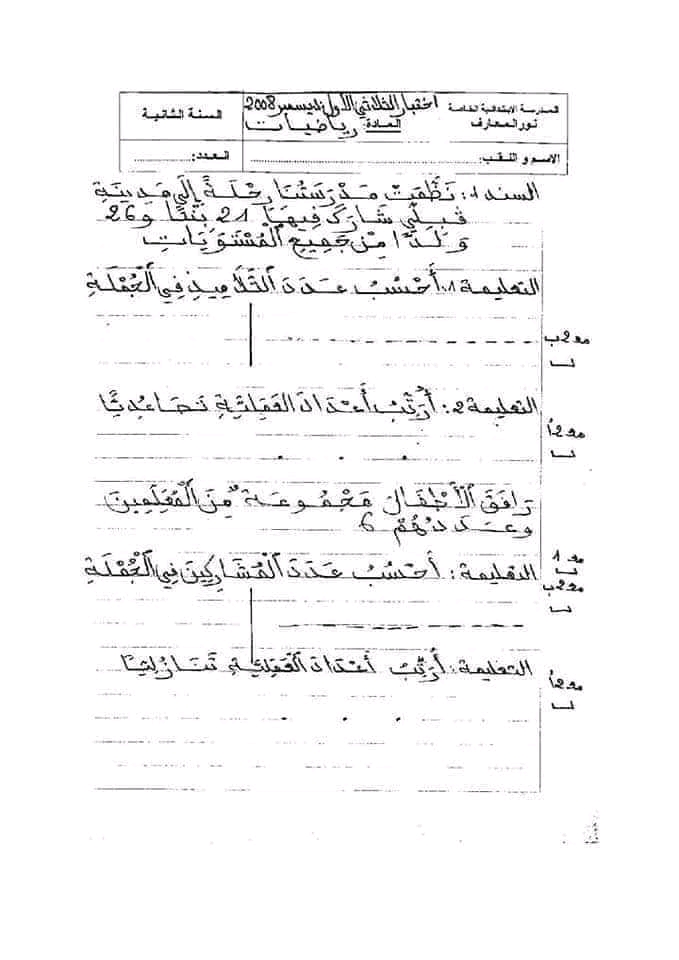 المدرسة الابتدائية الخاصة
نور المعارف
اختبار الثلاثي الأول ديسمبر 2008
المادة: رياضيات
السنة الثانية
الاسم و اللقب:
العدد:
السند 1: نَظَّمَتْ مَدْرَسَتُنَا رِحْلَةً إِلَى مَدِينَةِ
قِبِلِّي شَارَكَ فِيهَا 21 بِنْتًا و 26
وَلَدًا مِنْ جَمِيعِ الْمُسْتَوَيَاتِ
التعليمة 1: أَحْسُبُ عَدَدَ التَّلَامِيذِ فِي الْجُمْلَةِ
مع 2ب
التعليمة 2: أُرَتِّبُ أَعْدَادَ العَمَلِيَّةِ تَصَاعُدِيًّا
مع 2أ
رَافَقَ الْأَطْفَالَ مَجْمُوعَةٌ مِنَ الْمُعَلِّمِينَ
وعَدَدُهُمْ 6
التعليمة: أَحْسُبُ عَدَدَ الْمُشَارِكِينَ فِي الْجُمْلَةِ
مع 1
مع 2ب
التعليمة: أُرَتِّبُ أَعْدَادَ العَمَلِيَّةِ تَنَازُلِيًّا
مع 2أ